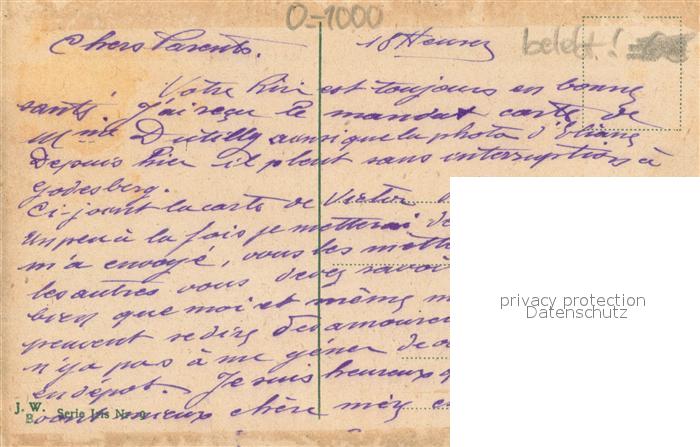 0-1000
Chers Parents. 18 Heures
belebt!
Votre Riri est toujours en bonne
santé. J'ai reçu le mandat carte de
Mme Dutilly aussi que la photo d'Eliane
Depuis hier il pleut sans interruption à
Godesberg.
Ci-joint la carte de Victor
un peu à la fois je mettrai de
m'a envoyé, vous les mettre
les autres vous devez savoir
bien que moi et même m
peuvent redire des amoureu
n'y a pas à me géner de
en dépot. Je suis heureux q
vont mieux chère mère e
J. W.
B. Serie Iris Nr. 9
privacy protection
Datenschutz